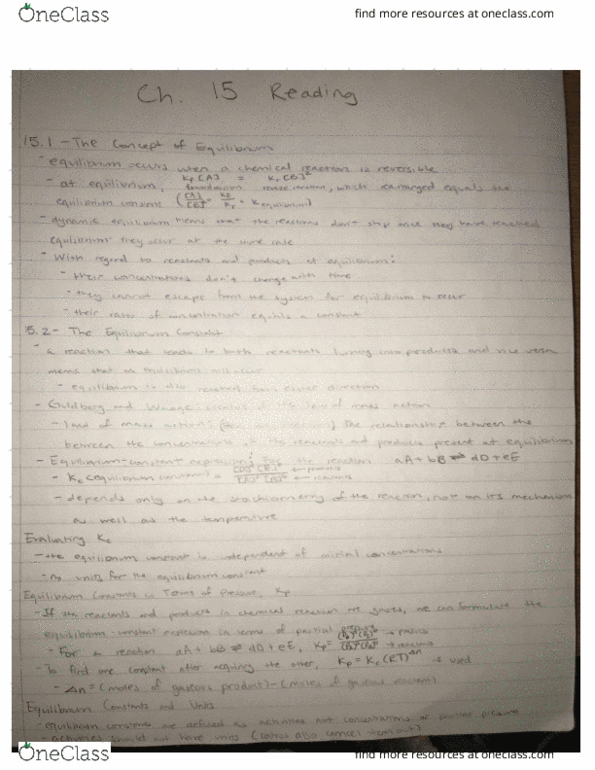 OneClass
find more resources at oneclass.com
Ch. 15 Reading
15.1 - The Concept of Equilibrium
- equilibrium occurs when a chemical reaction is reversible
- at equilibrium, Kf [A] = Kr [B], which rearranged equals the
equilibrium constant
- dynamic equilibrium means that the reactions don't stop once they have reached
equilibrium: they occur at the same rate
- With regard to reactants and products at equilibrium:
- their concentrations don't change with time
- they cannot escape from the system for equilibrium to occur
- their ratio of concentration equals a constant
15.2 - The Equilibrium Constant
- a reaction that leads to both reactants turning into products and vice versa
means that an equilibrium will occur
- equilibrium is also reached from either direction
- Guldberg and Waage: law of mass action
- law of mass action: The relationship between the
between the concentrations of the reactants and products present at equilibrium
- Equilibrium-constant expression: For the reaction aA + bB ⇌ dD + eE
- Kc (equilibrium constant) = ← products ← reactants
- depends only on the stoichiometry of the reaction, not on its mechanism
as well as the temperature
Evaluating Kc
- the equilibrium constant is independent of initial concentrations
- no units for the equilibrium constant
Equilibrium Constants in Terms of Pressure, Kp
- If the reactants and products in chemical reaction are gases, we can formulate the
equilibrium-constant expression in terms of partial pressures
- For a reaction aA + bB ⇌ dD + eE, Kp =
- To find one constant after acquiring the other, Kp = Kc (RT)^Δn is used
- Δn = (moles of gaseous product) - (moles of gaseous reactant)
Equilibrium Constants and Units
- equilibrium constants are defined as activities not concentrations or partial pressure
- activities should not have units (ratios also cancel them out)
OneClass
find more resources at oneclass.com